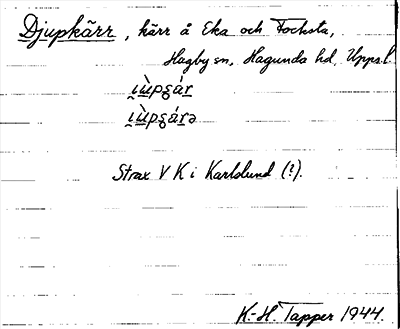 Djupkärr, kärr å Eka och Focksta,
Hagby sn, Hagunda hd, Upps.l.
Strax V K i Karlslund (?).
K.-H. Tapper 1944.